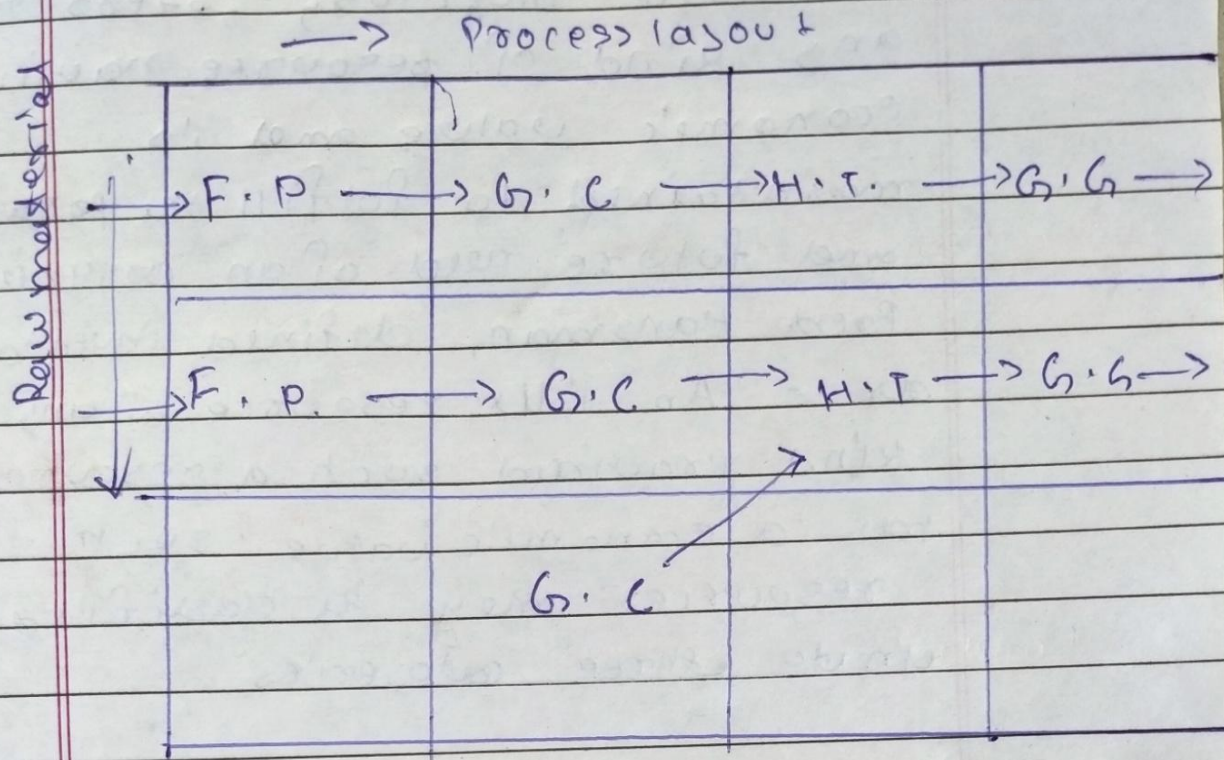 → Process layout
Raw material
→ F.P → G.C → H.T. → G.G →
→ F.P. → G.C → H.T → G.G →
G.C